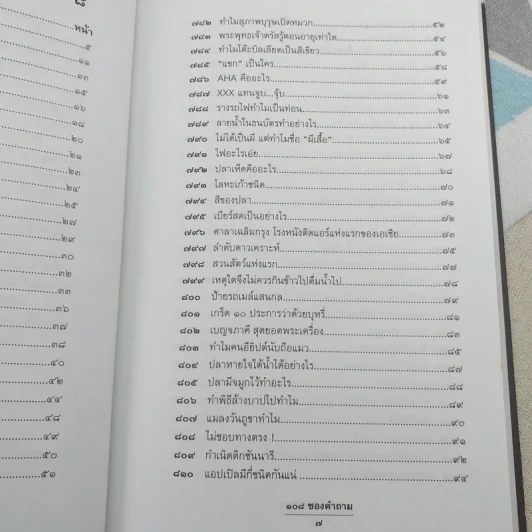 ๘
หน้า
๕
๑๑
๑๓
๑๕
๑๖
๑๘
๒๐
๒๑
๒๓
๒๔
๒๕
๒๗
๒๙
๓๐
๓๒
๓๓
๓๖
๓๗
๓๘
๔๐
๔๒
๔๔
๔๘
๔๙
๕๐
๕๑
๗๘๒ ทำไมสุภาพบุรุษเปิดหมวก ๕๒
๗๘๓ พระพุทธเจ้าตรัสรู้ตอนอายุเท่าใด ๕๔
๗๘๔ ทำไมโต๊ะบิลเลียดเป็นสีเขียว ๕๖
๗๘๕ "แขก" เป็นใคร ๕๘
๗๘๖ AHA คืออะไร ๕๙
๗๘๗ XXX แทนจูบ...จุ๊บ ๖๑
๗๘๘ รางรถไฟทำไมเป็นท่อน ๖๓
๗๘๙ ลายน้ำในธนบัตรทำอย่างไร ๖๔
๗๙๐ ไม่ได้เป็นผี แต่ทำไมชื่อ "ผีเสื้อ" ๖๕
๗๙๑ ไฟอะไรเอ่ย ๖๗
๗๙๒ ปลาเห็ดคืออะไร ๖๘
๗๙๓ โลหะเก้าชนิด ๗๐
๗๙๔ สีของปลา ๗๑
๗๙๕ เบียร์สดเป็นอย่างไร ๗๒
๗๙๖ ศาลาเฉลิมกรุง โรงหนังติดแอร์แห่งแรกของเอเชีย ๗๓
๗๙๗ ลำดับดาวเคราะห์ ๗๕
๗๙๘ สวนสัตว์แห่งแรก ๗๗
๗๙๙ เหตุใดจึงไม่ควรกินข้าวไปดื่มน้ำไป ๗๘
๘๐๐ ป้ายรถเมล์แสนกล ๗๙
๘๐๑ เกร็ด ๑๐ ประการว่าด้วยบุหรี่ ๘๑
๘๐๒ เบญจภาคี สุดยอดพระเครื่อง ๘๓
๘๐๓ ทำไมคนอียิปต์นับถือแมว ๘๕
๘๐๔ ปลาหายใจใต้น้ำได้อย่างไร ๘๗
๘๐๕ ปลามีจมูกไว้ทำอะไร ๘๘
๘๐๖ ทำพิธีล้างบาปไปทำไม ๘๙
๘๐๗ แมลงวันถูขาทำไม ๙๐
๘๐๘ ไม่ชอบทางตรง ! ๙๑
๘๐๙ กำเนิดดิกชันนารี ๙๒
๘๑๐ แอปเปิลมีกี่ชนิดกันแน่ ๙๔
๑๐๘ ซองคำถาม
๗